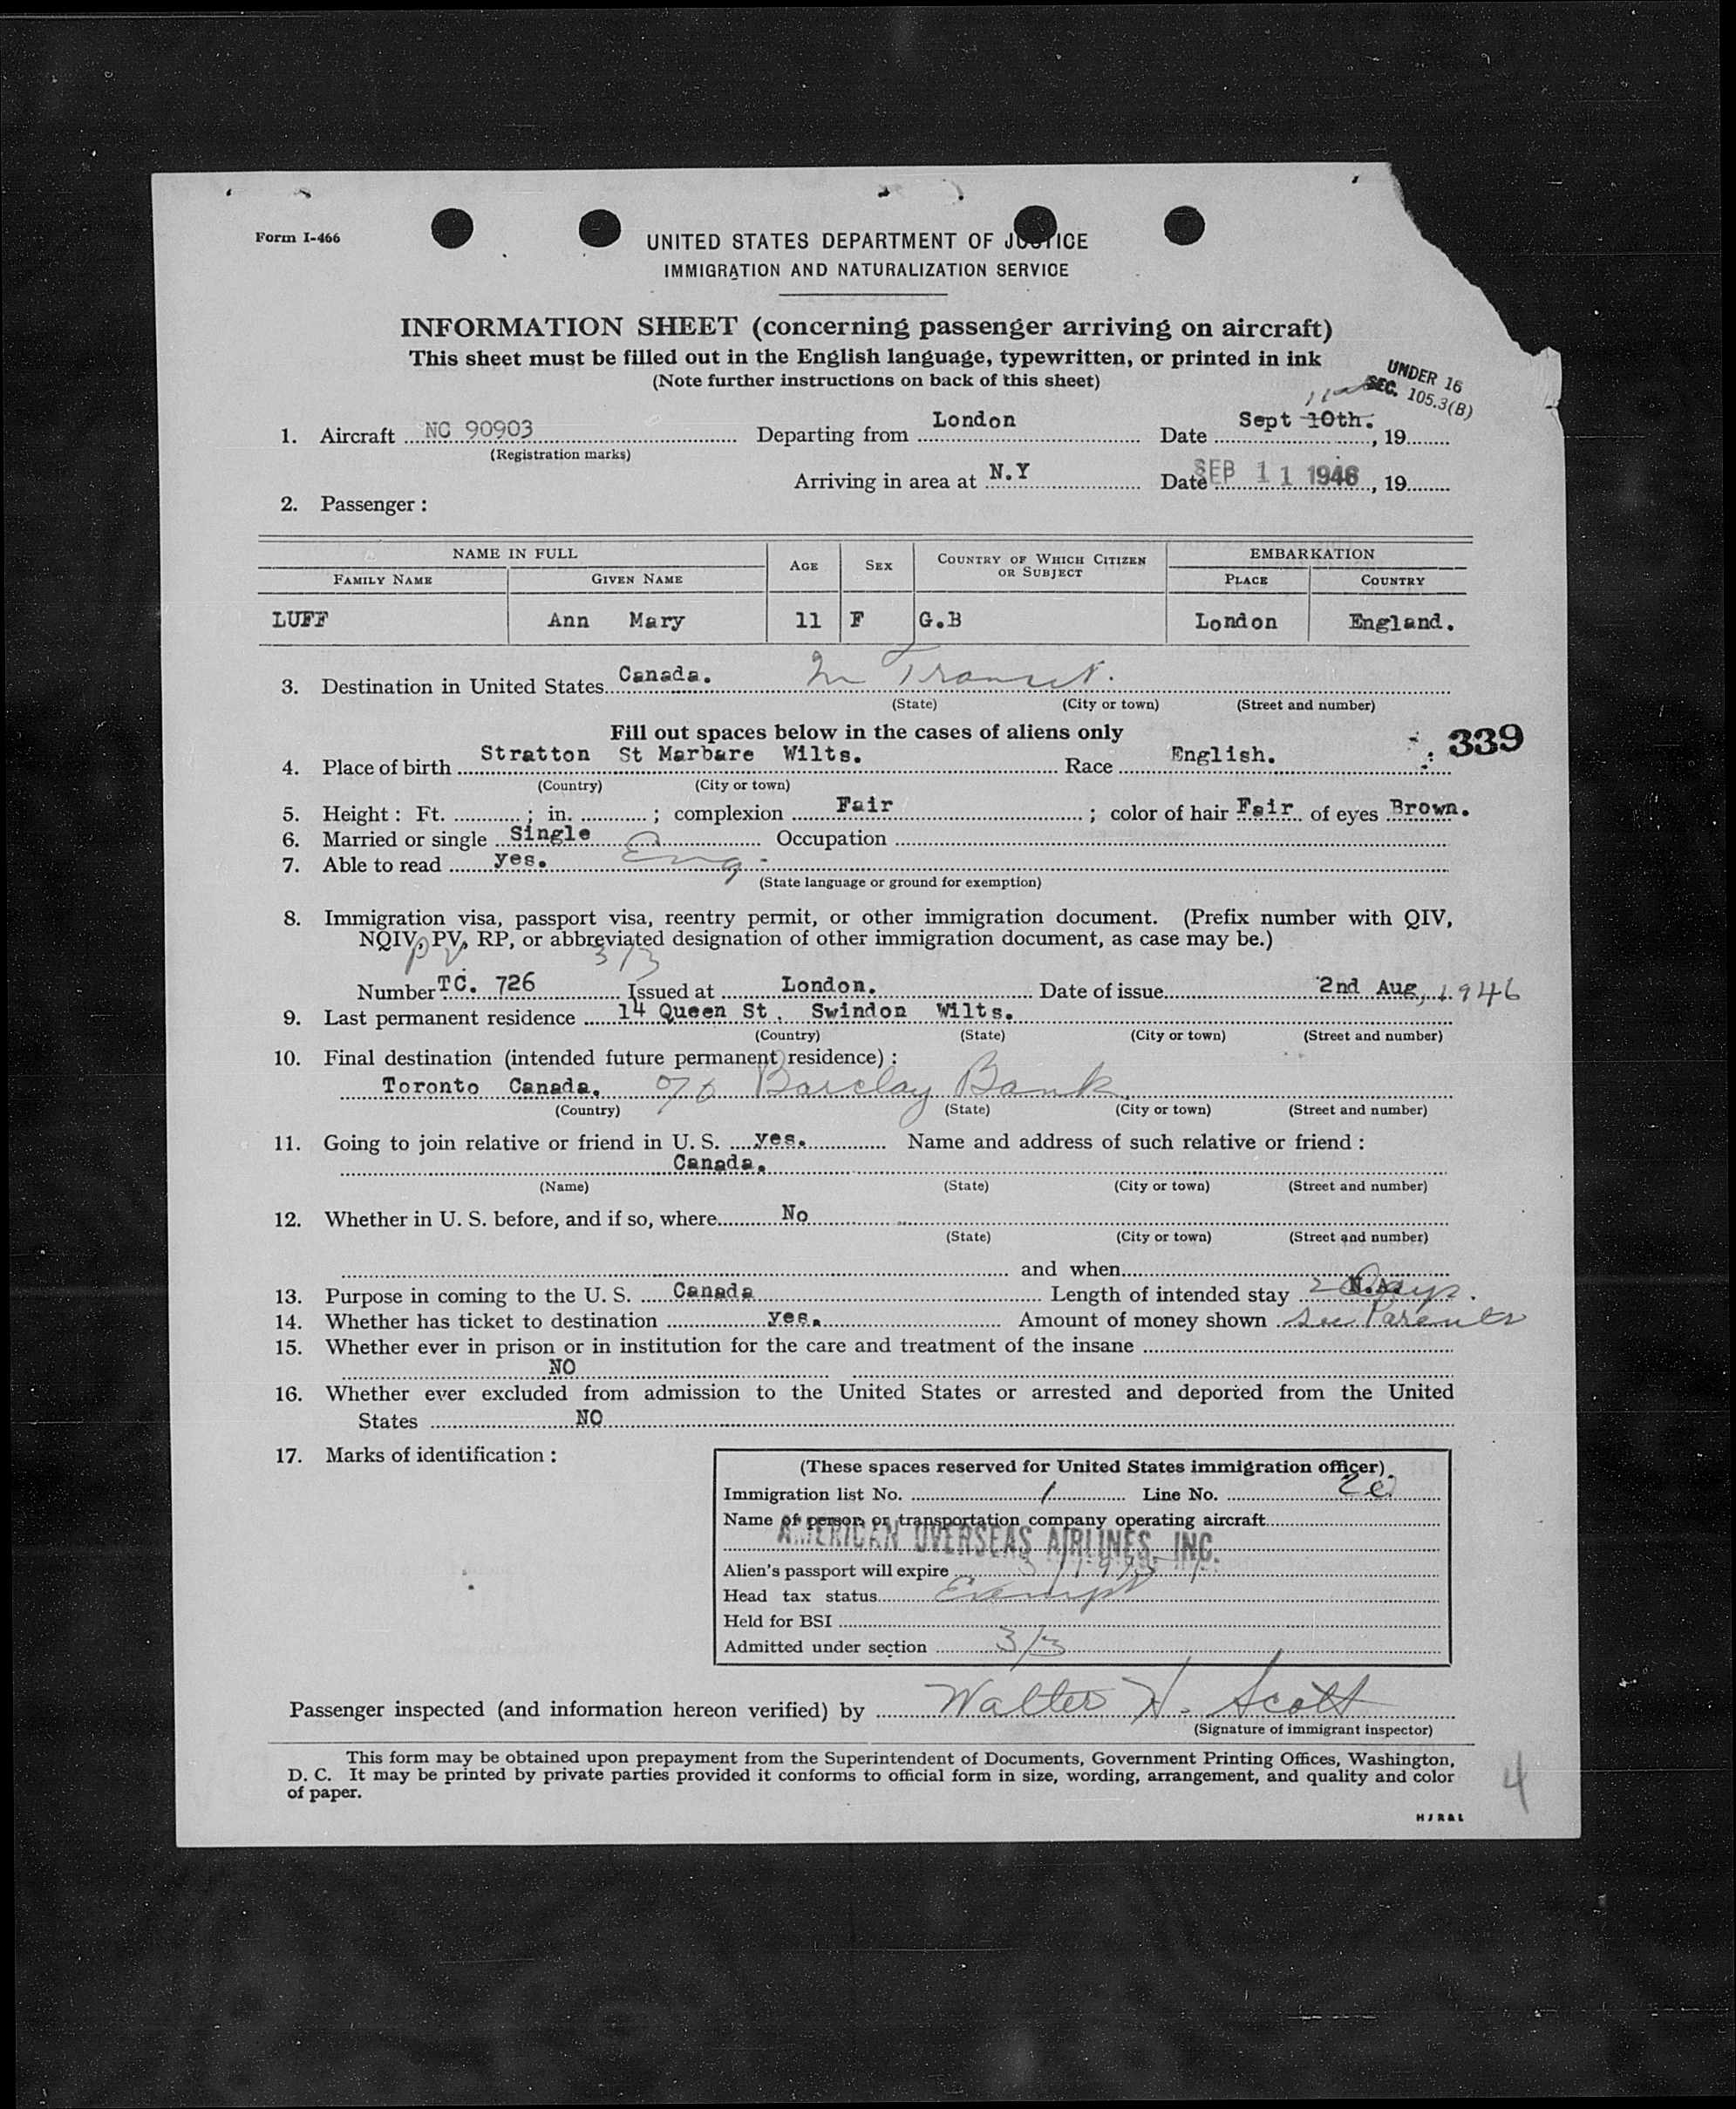 Form I-466
UNITED STATES DEPARTMENT OF JUSTICE
IMMIGRATION AND NATURALIZATION SERVICE
INFORMATION SHEET (concerning passenger arriving on aircraft)
This sheet must be filled out in the English language, typewritten, or printed in ink
(Note further instructions on back of this sheet)
UNDER 16
SEC. 105.3(B)
1. Aircraft NC 90903 Departing from London Date Sept 10th. 11th, 19
(Registration marks)
Arriving in area at N.Y Date SEP 11 1946, 19
2. Passenger:
NAME IN FULL AGE SEX COUNTRY OF WHICH CITIZEN OR SUBJECT EMBARKATION
FAMILY NAME GIVEN NAME PLACE COUNTRY
LUFF Ann Mary 11 F G.B London England.
3. Destination in United States Canada. In Transit.
(State) (City or town) (Street and number)
Fill out spaces below in the cases of aliens only
339
4. Place of birth Stratton St Marbare Wilts. Race English.
(Country) (City or town)
5. Height: Ft. ; in. ; complexion Fair ; color of hair Fair of eyes Brown.
6. Married or single Single Occupation
7. Able to read yes. Eng.
(State language or ground for exemption)
8. Immigration visa, passport visa, reentry permit, or other immigration document. (Prefix number with QIV,
NQIV, PV, RP, or abbreviated designation of other immigration document, as case may be.)
PV 3/3
Number TC. 726 Issued at London. Date of issue 2nd Aug, 1946
9. Last permanent residence 14 Queen St. Swindon Wilts.
(Country) (State) (City or town) (Street and number)
10. Final destination (intended future permanent residence):
Toronto Canada. c/o Barclay Bank
(Country) (State) (City or town) (Street and number)
11. Going to join relative or friend in U. S. yes. Name and address of such relative or friend:
Canada.
(Name) (State) (City or town) (Street and number)
12. Whether in U. S. before, and if so, where No
(State) (City or town) (Street and number)
and when
13. Purpose in coming to the U. S. Canada Length of intended stay N.A. 2 Days.
14. Whether has ticket to destination yes. Amount of money shown see Parents
15. Whether ever in prison or in institution for the care and treatment of the insane
NO
16. Whether ever excluded from admission to the United States or arrested and deported from the United
States NO
17. Marks of identification:
(These spaces reserved for United States immigration officer)
Immigration list No. 1 Line No. 20
Name of person or transportation company operating aircraft
AMERICAN OVERSEAS AIRLINES, INC.
Alien's passport will expire
Head tax status Exempt
Held for BSI
Admitted under section 3/3
Passenger inspected (and information hereon verified) by Walter H. Scott
(Signature of immigrant inspector)
This form may be obtained upon prepayment from the Superintendent of Documents, Government Printing Offices, Washington,
D. C. It may be printed by private parties provided it conforms to official form in size, wording, arrangement, and quality and color
of paper.
4
HJR&L